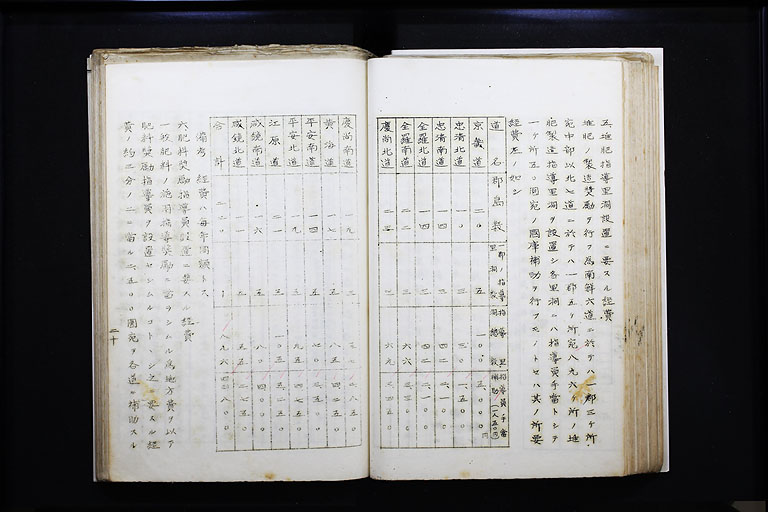 五堆肥指導里洞設置ニ要スル経費
堆肥ノ製造奨励ヲ行フ為南鮮六道ニ於テハ一郡三ケ所、
宛中部以北七道ニ於テハ一郡五ケ所宛八九六ケ所ノ堆
肥製造指導里洞ヲ設置シ各里洞ニハ指導員手當トシテ
一ケ所五〇圓宛ノ國庫補助ヲ行フモノトセハ其ノ所要
経費左ノ如シ
道名 郡島数 一郡ノ指導里洞数 指導里洞総数 指導員手當補助(一人五〇円)
京畿道 二〇 五 一〇〇 五、〇〇〇
忠清北道 一〇 三 三〇 一、五〇〇
忠清南道 一四 三 四二 二、一〇〇
全羅北道 一四 三 四二 二、一〇〇
全羅南道 二二 三 六六 三、三〇〇
慶尚北道 二三 三 六九
慶尚南道 一九 三 五七 二、八五〇
黄海道 一七 五 八五 四、二五〇
平安南道 一四 五 七〇 三、五〇〇
平安北道 一九 五 九五 四、七五〇
江原道 二一 五 一〇五
咸鏡南道 一六 五 八〇 四、〇〇〇
咸鏡北道 一一 五 五五 二、七五〇
合計 二二〇 八九六 四四、八〇〇
備考 経費ハ毎年同額トス
六肥料奨励指導員設置ニ要スル経費
一般肥料ノ施用指導奨励ニ當ラシムル為地方費ヲ以テ
肥料奨励指導員ヲ設置セシムルコトトシ之ニ要スル経
費ノ約二分ノ一ニ當ル二、五〇〇圓宛ヲ各道ニ補助スル
二十